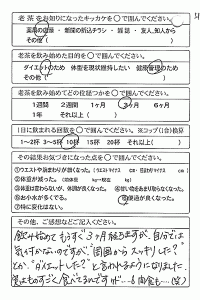 老茶をお知りになったキッカケを○で囲んでください。
薬局の店頭・新聞の折込チラシ・雑誌・友人、知人から
その他（　　　）
老茶を飲み始めた目的を○で囲んでください。
ダイエットのため　体型を現状維持したい　健康管理のため
その他（　　　）
老茶を飲み始めてどの位経つかを○で囲んでください。
1週間　2週間　1ヶ月　3ヶ月　6ヶ月
1年　それ以上（　　　）
1日に飲まれる回数を○で囲んでください。※コップ(1合)換算
1～2杯　3～5杯　10杯　15杯　20杯　それ以上（　　）
その結果お気づきになった点を○で囲んでください。
①ウエストや全体が細くなった。
②体重が減った。
③体重は変わらないが、体調が良くなった。
⑤お小水が多くでる。　⑥便通が良くなった。
⑦特に変化はない。
その他、ご感想などご記入ください。
飲み始めてもうすぐ3ヶ月経ちますが、自分では
気づかないのですが、"周囲からスッキリした？"
とか、"ダイエットした？"と言われるようになりました。